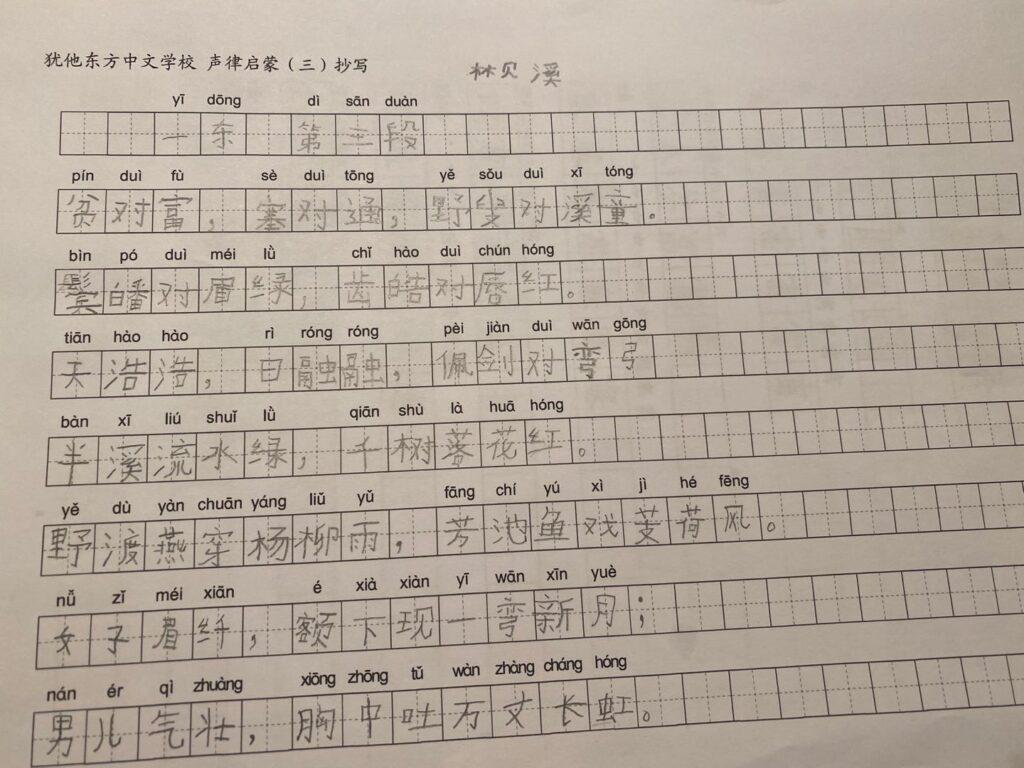 犹他东方中文学校 声律启蒙（三）抄写 林贝溪
yī dōng dì sān duàn
一东 第三段
pín duì fù sè duì tōng yě sǒu duì xī tóng
贫对富，塞对通，野叟对溪童。
bìn pó duì méi lǜ chǐ hào duì chún hóng
鬓皤对眉绿，齿皓对唇红。
tiān hào hào rì róng róng pèi jiàn duì wān gōng
天浩浩，日融融，佩剑对弯弓
bàn xī liú shuǐ lǜ qiān shù là huā hóng
半溪流水绿，千树落花红。
yě dù yàn chuān yáng liǔ yǔ fāng chí yú xì jì hé fēng
野渡燕穿杨柳雨，芳池鱼戏芰荷风。
nǚ zǐ méi xiān é xià xiàn yī wān xīn yuè
女子眉纤，额下现一弯新月；
nán ér qì zhuàng xiōng zhōng tǔ wàn zhàng cháng hóng
男儿气壮，胸中吐万丈长虹。